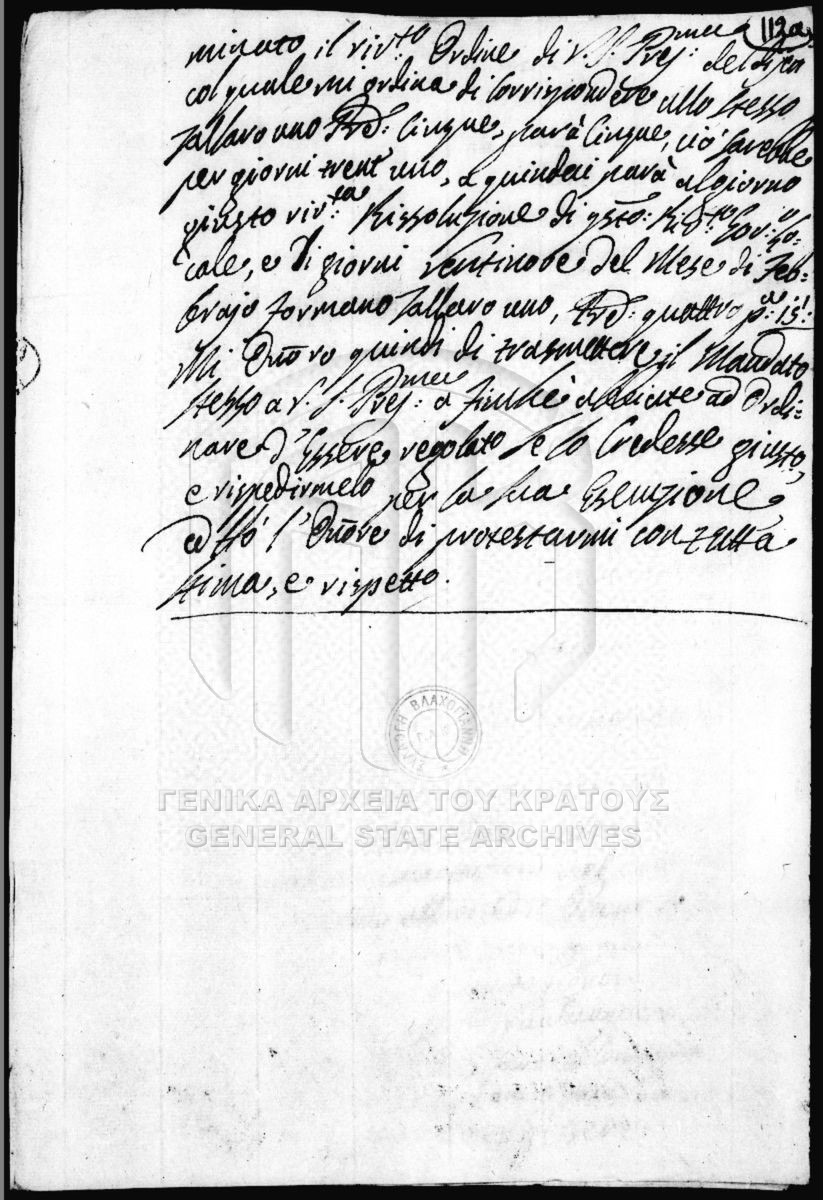 112a
minato il riv:to Ordine di V. S. Pres:mea del di
col quale mi ordina di Corrispondere allo stesso
Tallaro uno Prd: Cinque, parà Cinque, ciò sarebbe
per giorni trent'uno, a quindeci parà al giorno
giusto riv:ta Rissoluzione di gsto: Gov:o Lo-
cale, e di giorni ventinove del Mese di Feb=
brajo formano Tallaro uno, Prd: quattro p:a 15:
Mi Onoro quindi di trasmettere il Mandato
stesso a V. S. Pres:mea a finchè ad Ordi=
nare d'Essere regolato se lo Credesse giusto,
e rispedirmelo per la sua Esecuzione,
ed hò l'Onore di protestarmi con tutta
stima, e rispetto.
ΣΥΛΛΟΓΗ ΒΛΑΧΟΓΙΑΝΝΗ
Γ.Α.Κ
ΓΕΝΙΚΑ ΑΡΧΕΙΑ ΤΟΥ ΚΡΑΤΟΥΣ
GENERAL STATE ARCHIVES